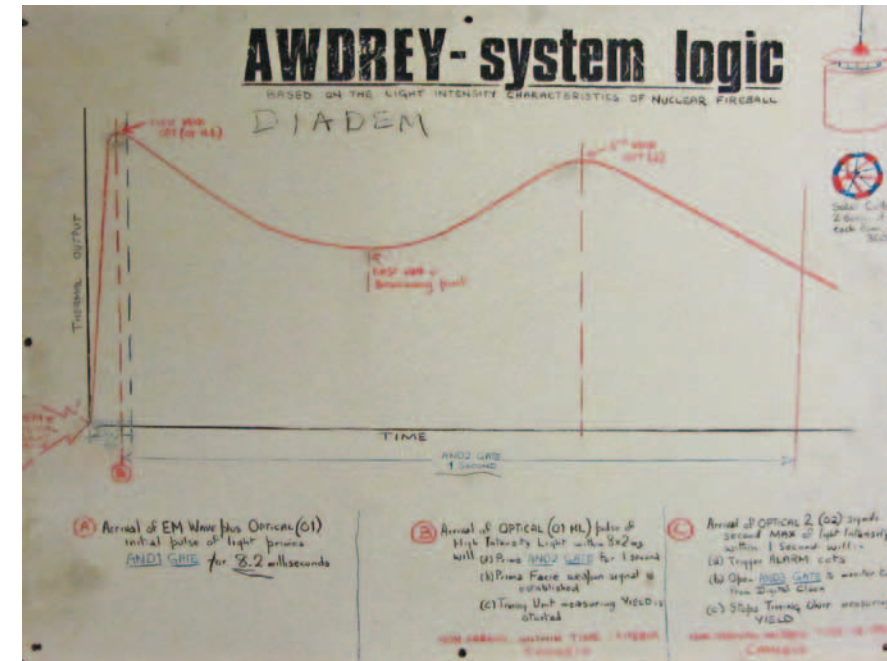 AWDREY-system logic
BASED ON THE LIGHT INTENSITY CHARACTERISTICS OF NUCLEAR FIREBALL
DIADEM
THERMAL OUTPUT
TIME
AND2 GATE
1 SECOND
B
A Arrival of EM Wave plus OPTICAL (01)
initial pulse of light primes
AND1 GATE for 8.2 milliseconds
B Arrival of OPTICAL (01 HL) pulse of
High Intensity Light within
will (a) Prime AND2 GATE for 1 second
(b) Prima Facie weapon signal is
established
(c) Timing Unit measuring YIELD is
started
C Arrival of OPTICAL 2 (02)
second MAX of light Intensity
within 1 Second will:-
(a) Trigger ALARM ccts
(b) Open AND2 GATE
from Digital Clock
(c) Stops Timing Unit measuring
YIELD